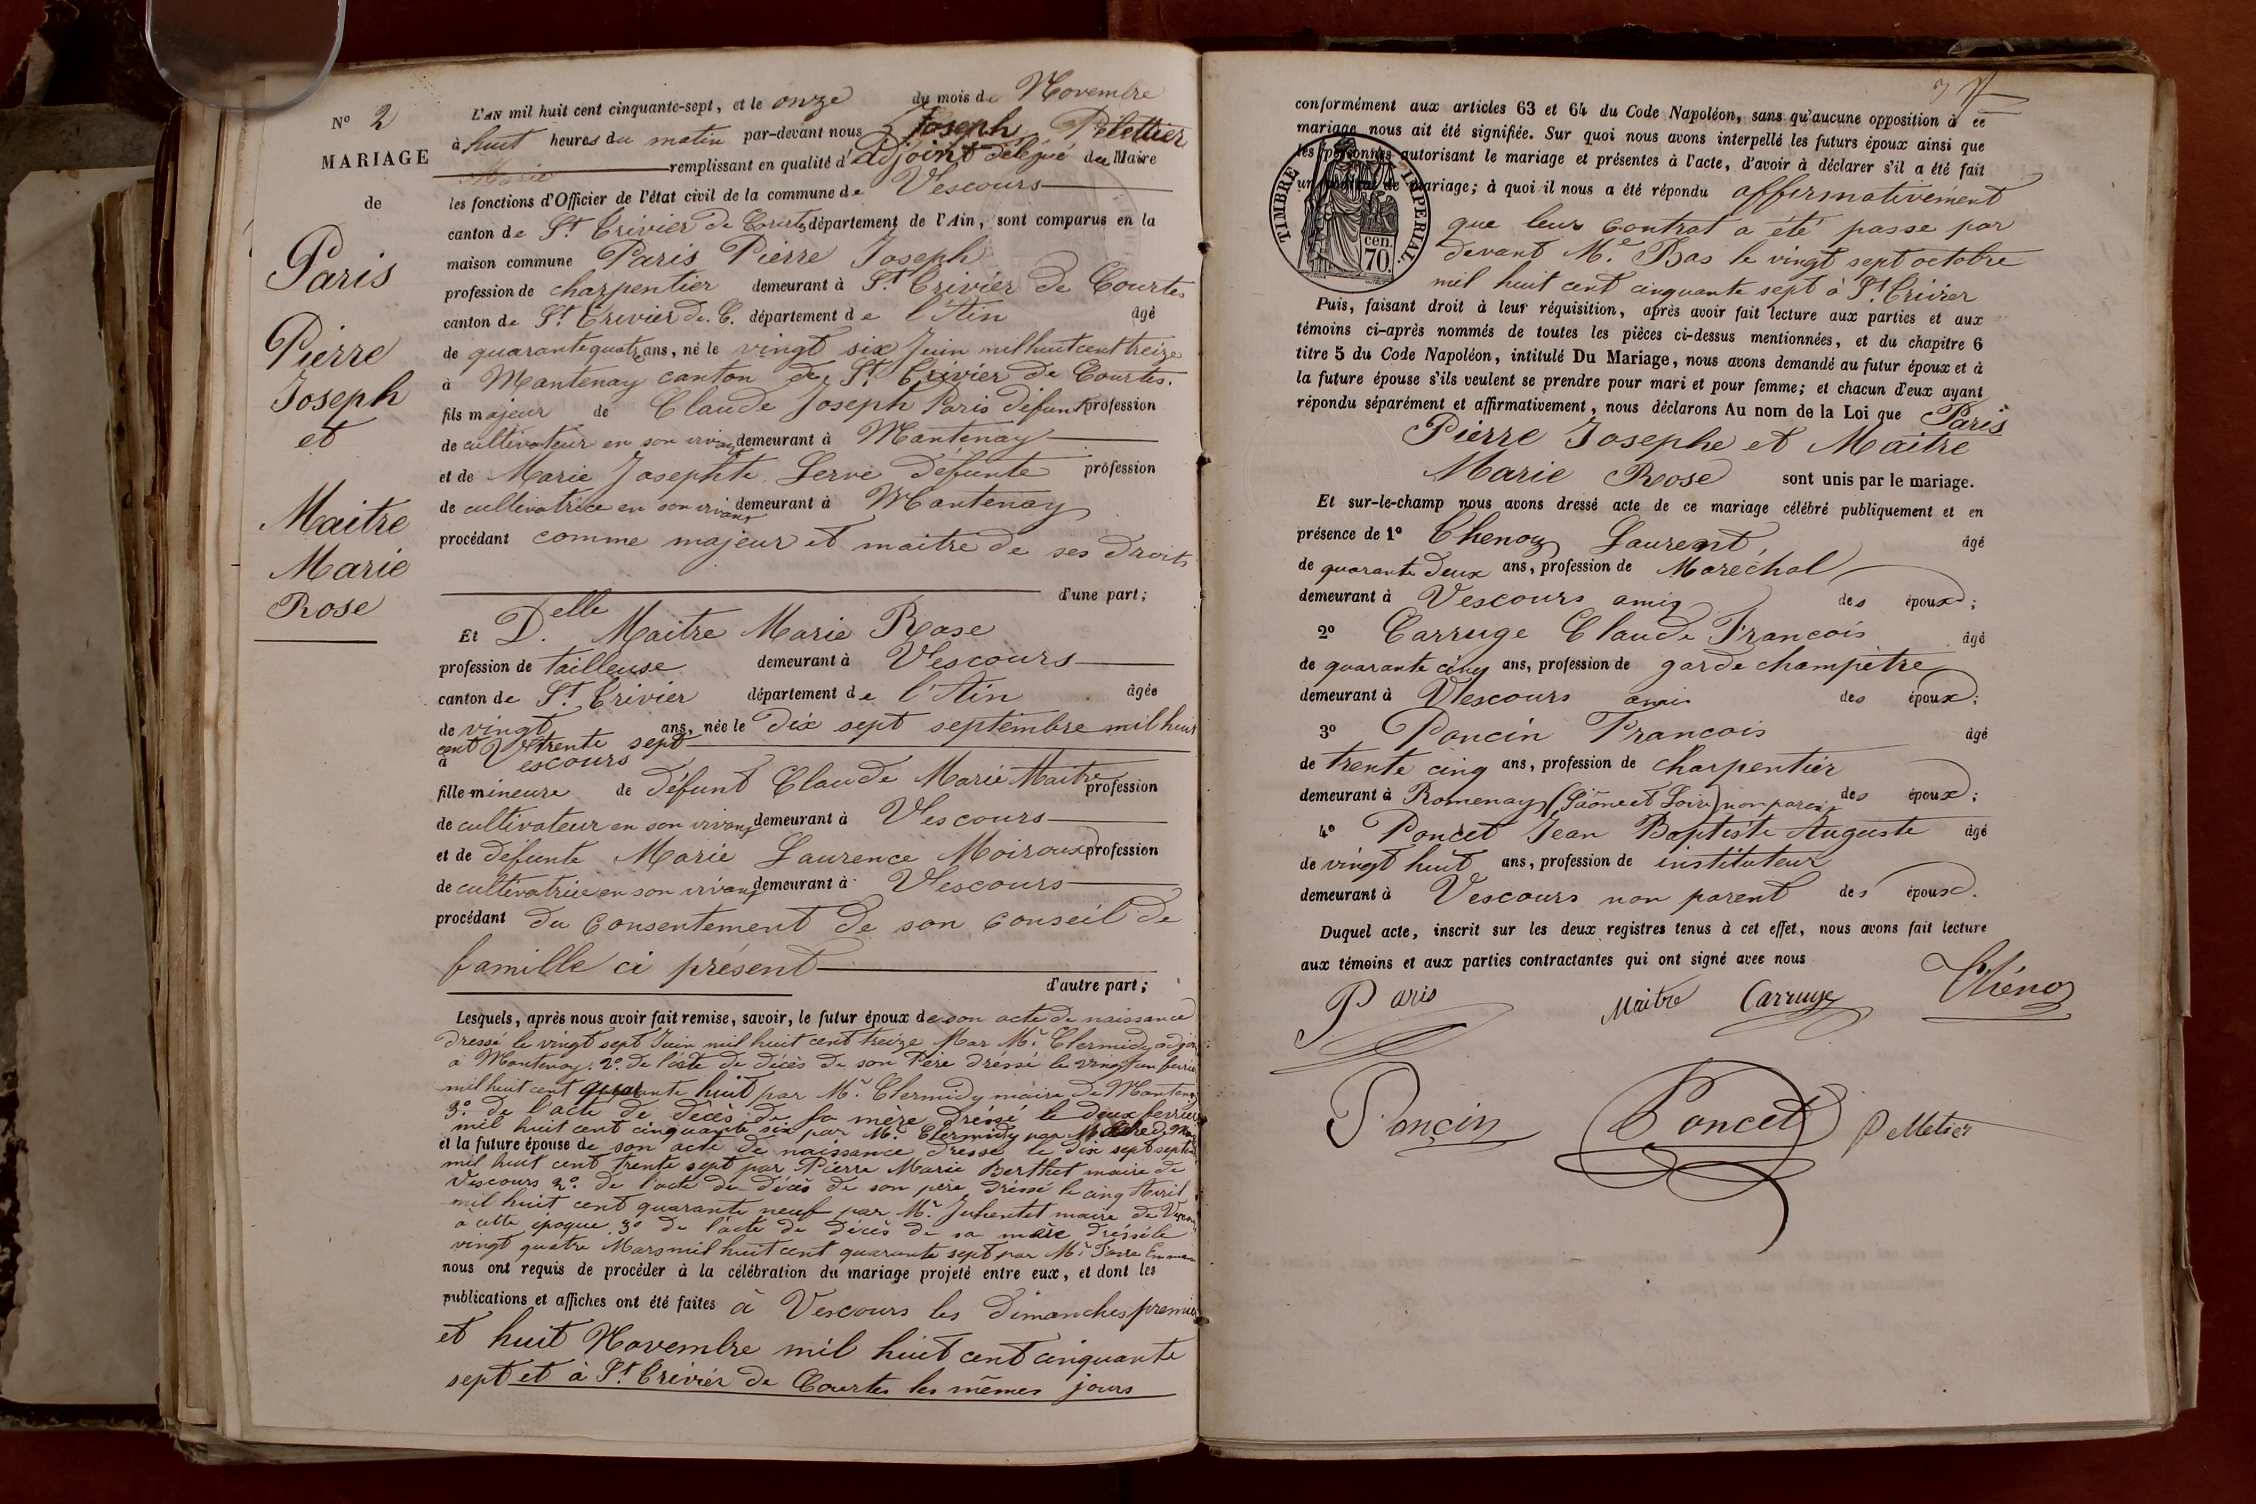 N° 2
MARIAGE
de
Paris
Pierre
Joseph
et
Maitre
Marie
Rose
L'AN mil huit cent cinquante-sept, et le onze du mois de Novembre
à huit heures du matin par-devant nous Joseph Pelettier
remplissant en qualité d'Adjoint délégué du Maire
les fonctions d'Officier de l'état civil de la commune de Vescours
canton de St Trivier de Courtes département de l'Ain, sont comparus en la
maison commune Paris Pierre Joseph
profession de charpentier demeurant à St Trivier de Courtes
canton de St Trivier de C. département de l'Ain âgé
de quarante quatre ans, né le vingt six Juin mil huit cent treize
à Mantenay canton de St Trivier de Courtes.
fils majeur de Claude Joseph Paris défunt profession
de cultivateur en son vivant demeurant à Mantenay
et de Marie Josephte Serve défunte profession
de cultivatrice en son vivant demeurant à Mantenay
procédant comme majeur et maitre de ses droits
d'une part;
Et Delle Maitre Marie Rose
profession de tailleuse demeurant à Vescours
canton de St Trivier département de l'Ain âgée
de vingt ans, née le dix sept septembre mil huit
cent trente sept
à Vescours
fille mineure de défunt Claude Marie Maitre profession
de cultivateur en son vivant demeurant à Vescours
et de défunte Marie Laurence Moiroux profession
de cultivatrice en son vivant demeurant à Vescours
procédant du consentement de son conseil de
famille ci présent
d'autre part;
Lesquels, après nous avoir fait remise, savoir, le futur époux de son acte de naissance
dressé le vingt sept Juin mil huit cent treize Par Mr Clermidy adjoint
à Mantenay. 2° de l'acte de décès de son Père dréssé le vingt un fevrier
mil huit cent quarante huit par Mr Clermidy maire de Mantenay
3° de l'acte de décès de sa mère dréssé le deux fevrier
mil huit cent cinquante six par Mr Clermidy
et la future épouse de son acte de naissance dressé le dix sept septembre
mil huit cent trente sept par Pierre Marie Berthet maire de
Vescours 2° de l'acte de décès de son père dréssé le cinq Avril
mil huit cent quarante neuf par Mr maire de Vescours
à cette époque 3° de l'acte de décès de sa mère dréssé le
vingt quatre Mars mil huit cent quarante sept par Mr
nous ont requis de procéder à la célébration du mariage projeté entre eux, et dont les
publications et affiches ont été faites à Vescours les dimanches premier
et huit Novembre mil huit cent cinquante
sept et à St Trivier de Courtes les mêmes jours
conformément aux articles 63 et 64 du Code Napoléon, sans qu'aucune opposition à ce
mariage nous ait été signifiée. Sur quoi nous avons interpellé les futurs époux ainsi que
les personnes autorisant le mariage et présentes à l'acte, d'avoir à déclarer s'il a été fait
un contrat de mariage; à quoi il nous a été répondu affirmativement
que leur contrat a été passe par
devant Me Bas le vingt sept octobre
mil huit cent cinquante sept à St Trivier
TIMBRE IMPERIAL.
70 cen.
Puis, faisant droit à leur réquisition, après avoir fait lecture aux parties et aux
témoins ci-après nommés de toutes les pièces ci-dessus mentionnées, et du chapitre 6
titre 5 du Code Napoléon, intitulé Du Mariage, nous avons demandé au futur époux et à
la future épouse s'ils veulent se prendre pour mari et pour femme; et chacun d'eux ayant
répondu séparément et affirmativement, nous déclarons Au nom de la Loi que Paris
Pierre Josephe et Maitre
Marie Rose sont unis par le mariage.
Et sur-le-champ nous avons dressé acte de ce mariage célébré publiquement et en
présence de 1° Chenoz Laurent, âgé
de quarante deux ans, profession de Maréchal
demeurant à Vescours amis des époux;
2° Carruge Claude Francois âgé
de quarante cinq ans, profession de garde champètre
demeurant à Vescours amis des époux;
3° Poncin Francois âgé
de trente cinq ans, profession de charpentier
demeurant à Romenay (Saône et Loire) non parent des époux;
4° Poncet Jean Baptiste Auguste âgé
de vingt huit ans, profession de instituteur
demeurant à Vescours non parent des époux.
Duquel acte, inscrit sur les deux registres tenus à cet effet, nous avons fait lecture
aux témoins et aux parties contractantes qui ont signé avec nous
Paris Maitre Carruge Chénoz
Poncin Poncet Pelletier